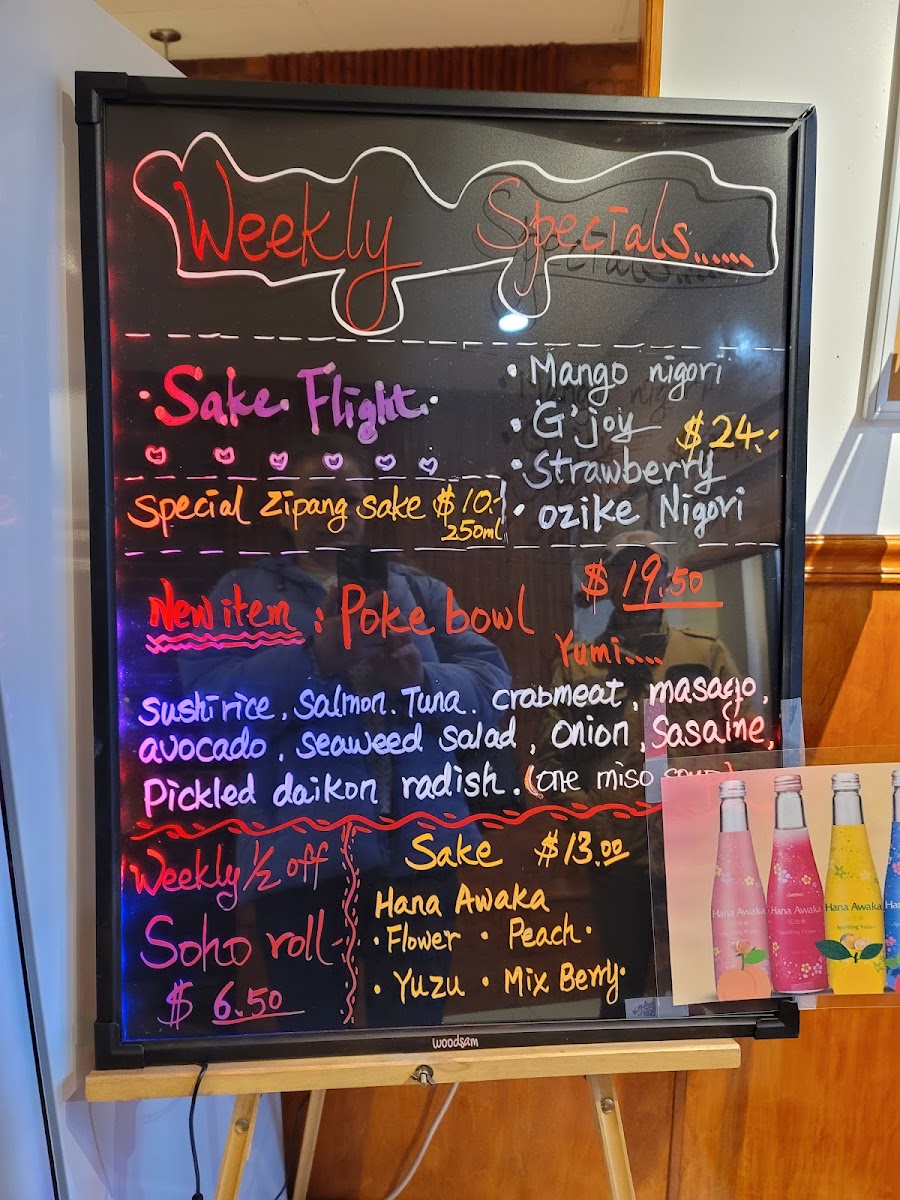 Weekly Specials......
Sake Flight
Mango nigori
G'joy
$24.-
Strawberry
ozike Nigori
Special Zipang Sake $10.-
250ml
New item : Poke bowl
$19.50
Yumi....
Sushi rice, Salmon. Tuna. crabmeat, masago,
avocado, seaweed salad, Onion, Sasame,
Pickled daikon radish. (one miso soup)
Weekly 1/2 off
Soho roll
$6.50
Sake $13.00
Hana Awaka
• Flower • Peach •
• Yuzu • Mix Berry •
Hana Awaka
Hana Awaka
Sparkling Flower
Hana Awaka
Sparkling Yuzu
woodsam